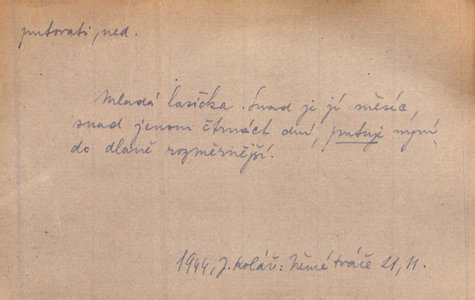 putovati, ned.
Mladá lasička. Snad je jí měsíc,
snad jenom čtrnáct dní, putuje nyní
do dlaně rozměrnější.
1944, J. Kolář: Němé tváře 21, 11.